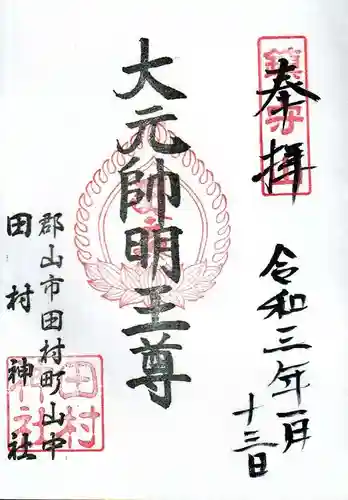 奉拝
令和三年一月
十三日
大元帥明王尊
郡山市田村町山中
田村神社
田村
神社